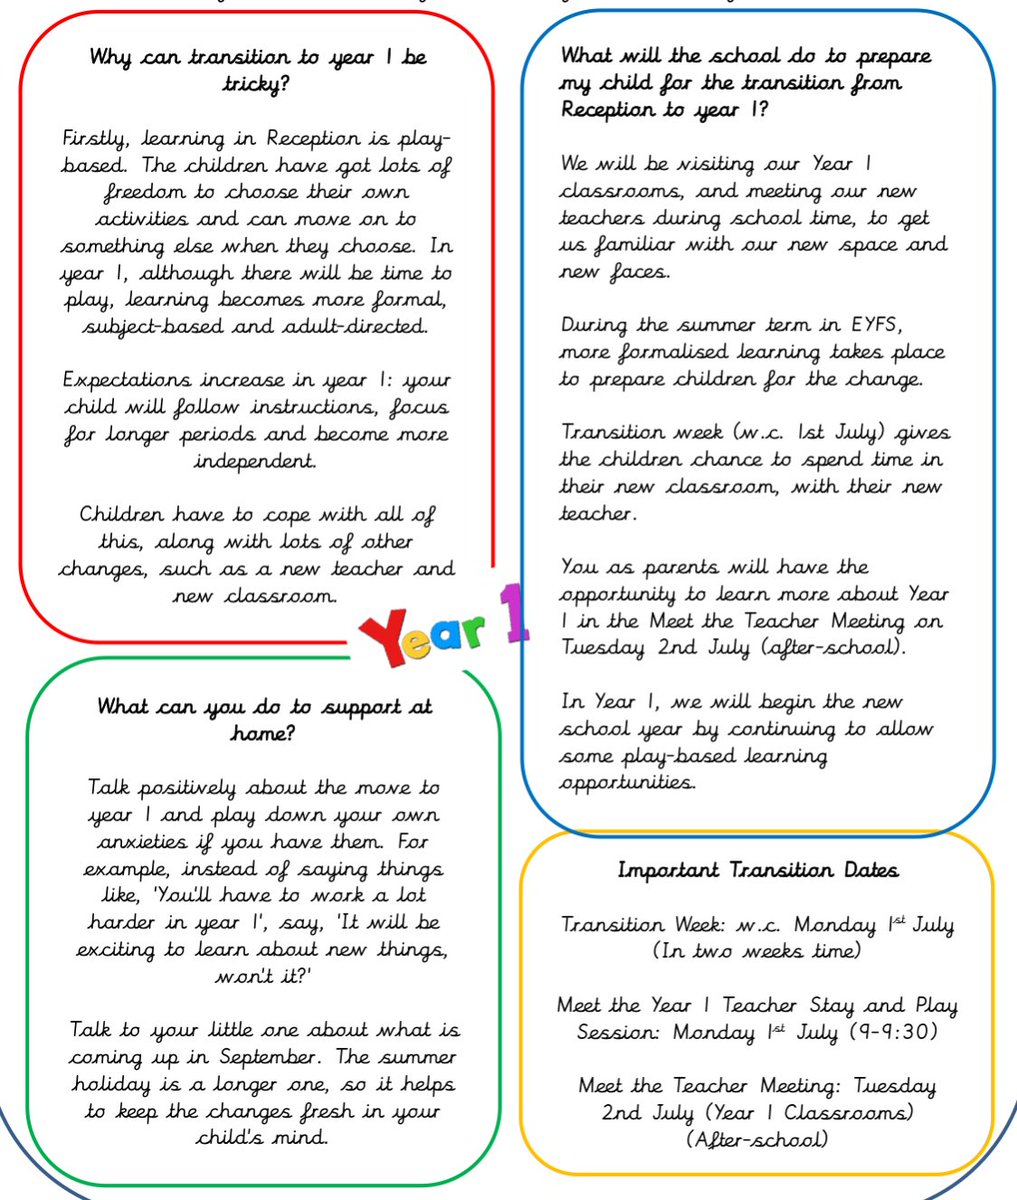 Why can transition to year 1 be
tricky?
Firstly, learning in Reception is play-
based. The children have got lots of
freedom to choose their own
activities and can move on to
something else when they choose. In
year 1, although there will be time to
play, learning becomes more formal,
subject-based and adult-directed.
Expectations increase in year 1: your
child will follow instructions, focus
for longer periods and become more
independent.
Children have to cope with all of
this, along with lots of other
changes, such as a new teacher and
new classroom.
Year 1
What can you do to support at
home?
Talk positively about the move to
year 1 and play down your own
anxieties if you have them. For
example, instead of saying things
like, 'You'll have to work a lot
harder in year 1', say, 'It will be
exciting to learn about new things,
won't it?'
Talk to your little one about what is
coming up in September. The summer
holiday is a longer one, so it helps
to keep the changes fresh in your
child's mind.
What will the school do to prepare
my child for the transition from
Reception to year 1?
We will be visiting our Year 1
classrooms, and meeting our new
teachers during school time, to get
us familiar with our new space and
new faces.
During the summer term in EYFS,
more formalised learning takes place
to prepare children for the change.
Transition week (w.c. 1st July) gives
the children chance to spend time in
their new classroom, with their new
teacher.
You as parents will have the
opportunity to learn more about Year
1 in the Meet the Teacher Meeting on
Tuesday 2nd July (after-school).
In Year 1, we will begin the new
school year by continuing to allow
some play-based learning
opportunities.
Important Transition Dates
Transition Week: w.c. Monday 1st July
(In two weeks time)
Meet the Year 1 Teacher Stay and Play
Session: Monday 1st July (9-9:30)
Meet the Teacher Meeting: Tuesday
2nd July (Year 1 Classrooms)
(After-school)